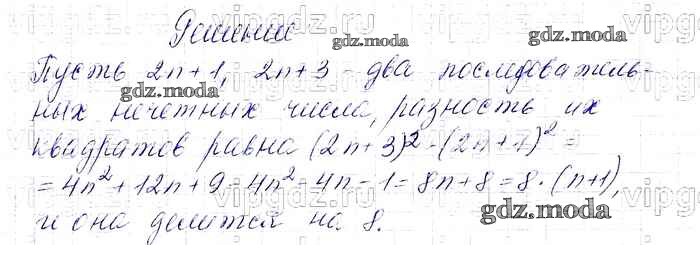 Решение
Пусть 2n+1, 2n+3 - два последователь-
ных нечетных числа, разность их
квадратов равна (2n+3)² - (2n+1)² =
= 4n² + 12n + 9 - 4n² - 4n - 1 = 8n + 8 = 8 · (n+1),
и она делится на 8.
gdz.moda
gdz.moda
gdz.moda
gdz.moda
vipgdz.ru
vipgdz.ru
vipgdz.ru